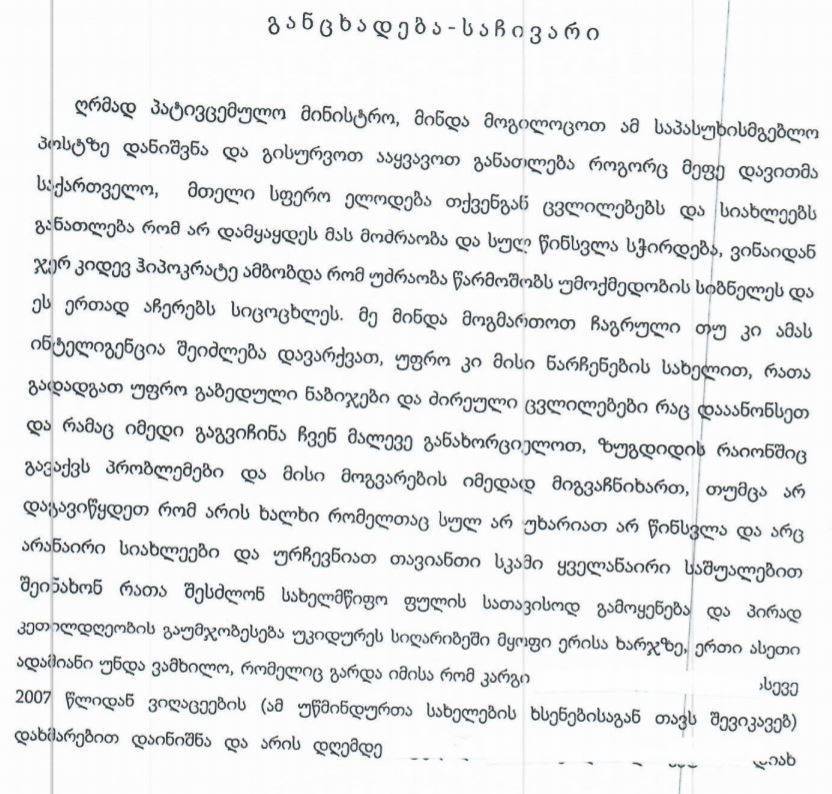 განცხადება-საჩივარი
ღრმად პატივცემულო მინისტრო, მინდა მოგილოცოთ ამ საპასუხისმგებლო
პოსტზე დანიშვნა და გისურვოთ ააყვავოთ განათლება როგორც მეფე დავითმა
საქართველო, მთელი სფერო ელოდება თქვენგან ცვლილებებს და სიახლეებს
განათლება რომ არ დამყაყდეს მას მოძრაობა და სულ წინსვლა სჭირდება, ვინაიდან
ჯერ კიდევ ჰიპოკრატე ამბობდა რომ უძრაობა წარმოშობს უმოქმედობის სიბნელეს და
ეს ერთად აჩერებს სიცოცხლეს. მე მინდა მოგმართოთ ჩაგრული თუ კი ამას
ინტელიგენცია შეიძლება დავარქვათ, უფრო კი მისი ნარჩენების სახელით, რათა
გადადგათ უფრო გაბედული ნაბიჯები და ძირეული ცვლილებები რაც დააანონსეთ
და რამაც იმედი გაგვიჩინა ჩვენ მალევე განახორციელოთ, ზუგდიდის რაიონშიც
გავაქვს პრობლემები და მისი მოგვარების იმედად მიგვაჩნიხართ, თუმცა არ
დაგავიწყდეთ რომ არის ხალხი რომელთაც სულ არ უხარიათ არ წინსვლა და არც
არანაირი სიახლეები და ურჩევნიათ თავიანთი სკამი ყველანაირი საშუალებით
შეინახონ რათა შესძლონ სახელმწიფო ფულის სათავისოდ გამოყენება და პირად
კეთილდღეობის გაუმჯობესება უკიდურეს სიღარიბეში მყოფი ერისა ხარჯზე, ერთი ასეთი
ადამიანი უნდა ვამხილო, რომელიც გარდა იმისა რომ კარგი ასევე
2007 წლიდან ვიღაცეების (ამ უწმინდურთა სახელების ხსენებისაგან თავს შევიკავებ)
დახმარებით დაინიშნა და არის დღემდე